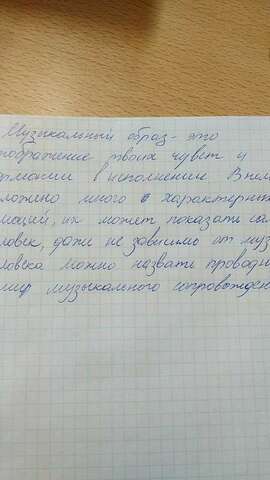 Музыкальный образ - это
ображение твоих чувств и
в исполнении. В нем
ложено много характерных
моций, их может показать сам
ловек, даже не зависимо от муз
ловека можно назвать проводн
мир музыкального сопровожден